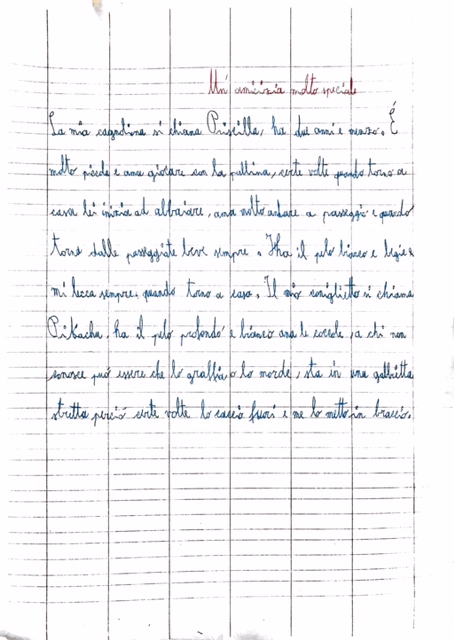 Un' amicizia molto speciale
La mia cagnolina si chiama Priscilla, ha due anni e mezzo. É
molto picola e ama giocare con la pallina, certe volte quando torno a
casa lei inizia ad abbaiare, ama molto andare a passeggio e quando
torno dalle passeggiate beve sempre. Ha il pelo bianco e
mi lecca sempre, quando torno a casa. Il mio coniglietto si chiama
Pikachu, ha il pelo profondo e bianco ama le coccole, a chi non
conosce può essere che lo graffia o lo morde, sta in una gabbietta
stretta perció certe volte lo caccio fuori e me lo metto in braccio.